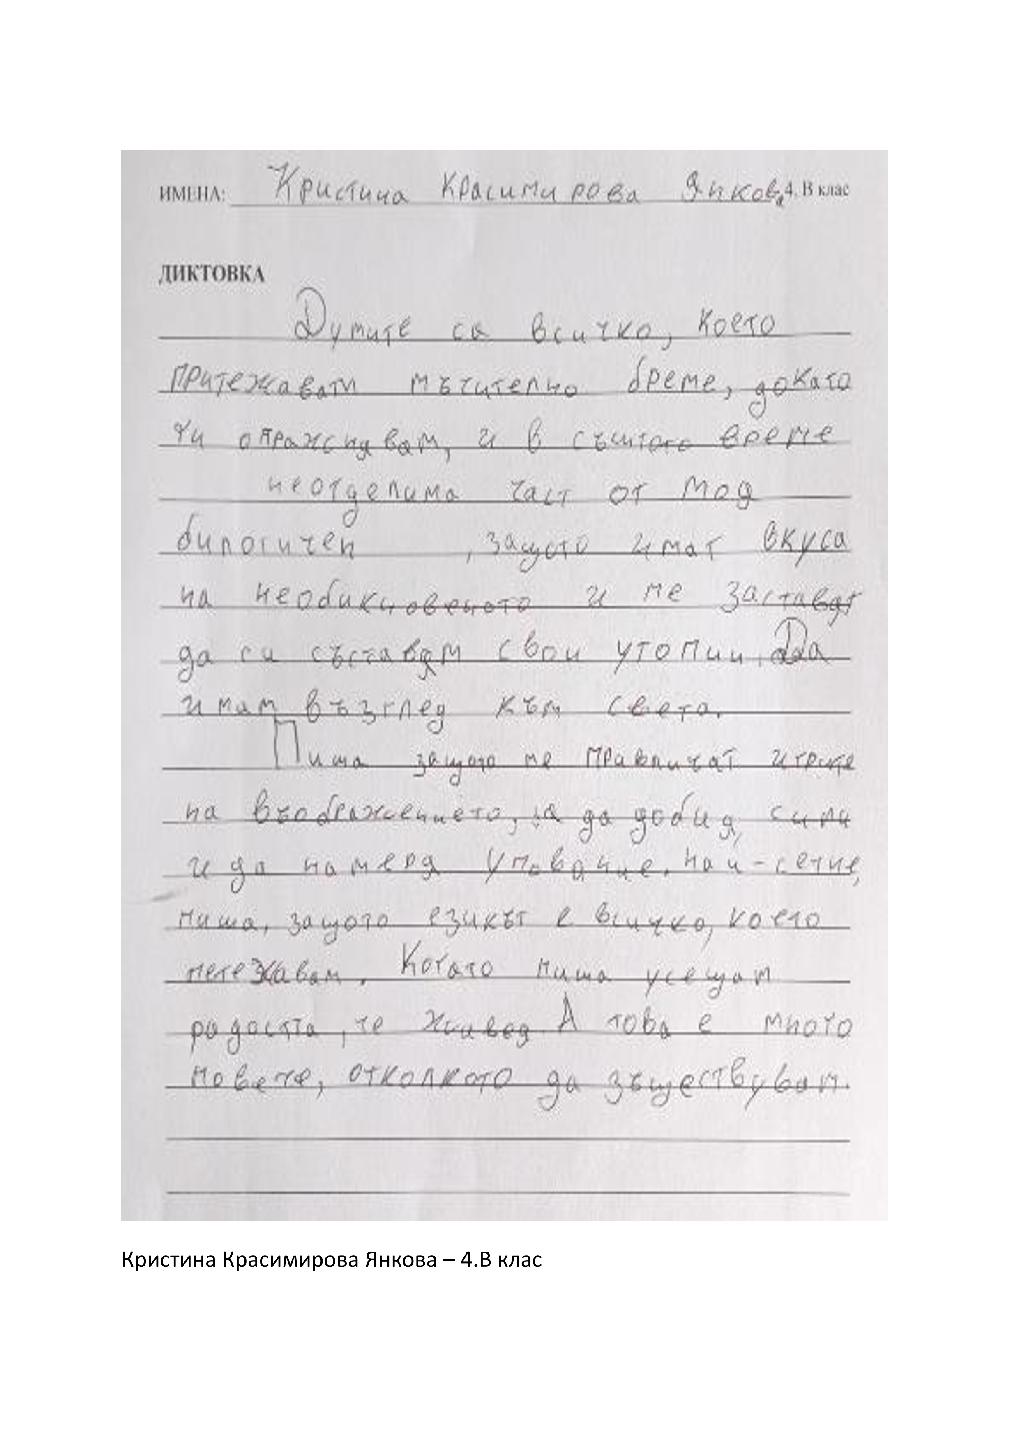 ИМЕНА: Кристина Красимирова Янкова 4. В клас
ДИКТОВКА
Думите са всичко, което
притежавам мъчително бреме, докато
ги опражснувам, и в същото време
неотделима част от мод
билогичен , защото имат вкуса
на необикновеното и ме заставят
да си съставям свои утопии. Да
имам възглед към света.
Пиша защото ме привличат игрите
на въображението, за да добия сили
и да намеря упование. Най-сетне,
пиша, защото езикът е всичко, което
Когато пиша усещам
радостта, че живея А това е много
повече, отколкото да съществувам.
Кристина Красимирова Янкова – 4.В клас